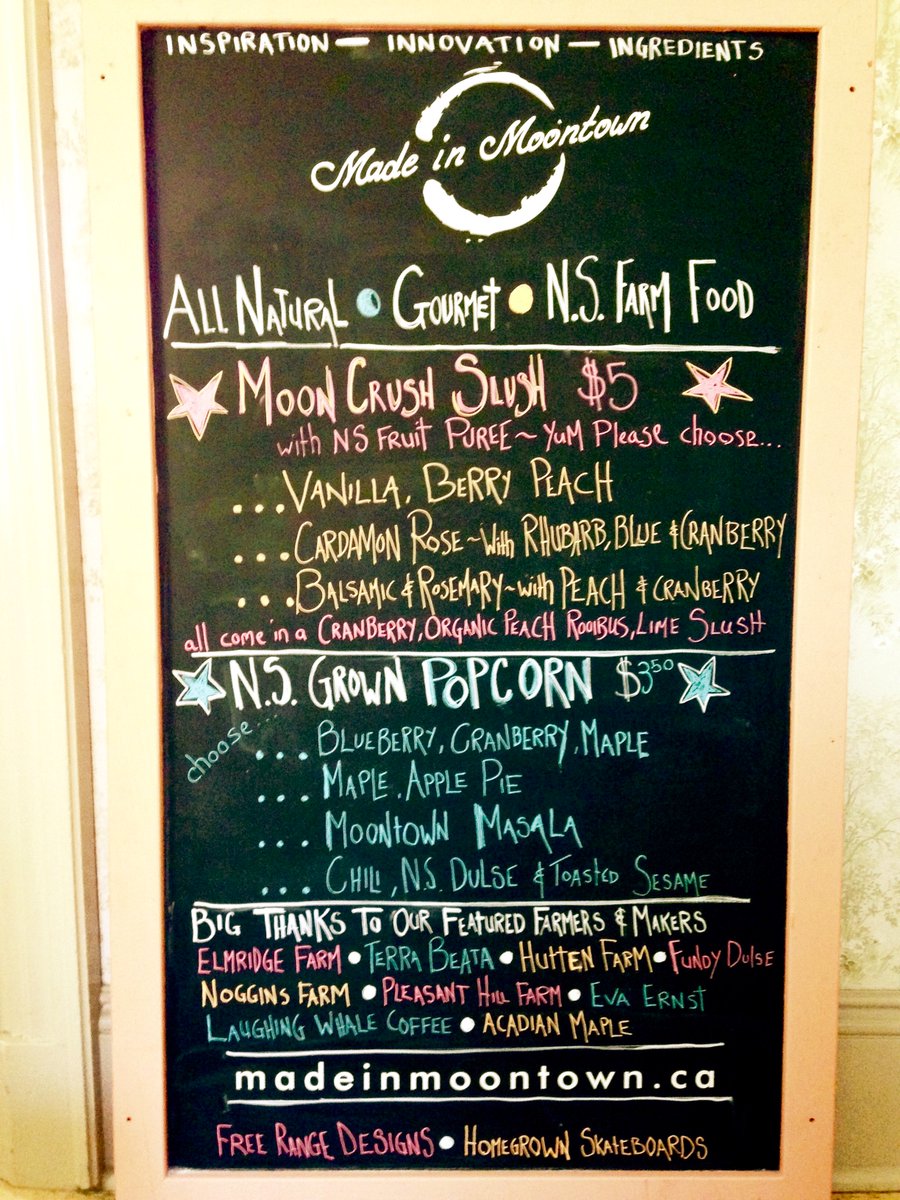 INSPIRATION — INNOVATION — INGREDIENTS
Made in Moontown
ALL NATURAL • GOURMET • N.S. FARM FOOD
MOON CRUSH SLUSH $5
with NS FRUIT PUREE ~ YUM Please choose...
...VANILLA, BERRY PEACH
...CARDAMON ROSE ~ with RHUBARB, BLUE & CRANBERRY
...BALSAMIC & ROSEMARY ~ with PEACH & CRANBERRY
all come in a CRANBERRY, ORGANIC PEACH ROOIBUS, LIME SLUSH
N.S. GROWN POPCORN $3.50
choose...
... BLUEBERRY, CRANBERRY, MAPLE
... MAPLE, APPLE PIE
... MOONTOWN MASALA
... CHILI, N.S. DULSE & TOASTED SESAME
BIG THANKS TO OUR FEATURED FARMERS & MAKERS
ELMRIDGE FARM • TERRA BEATA • HUTTEN FARM • FUNDY DULSE
NOGGINS FARM • PLEASANT HILL FARM • EVA ERNST
LAUGHING WHALE COFFEE • ACADIAN MAPLE
madeinmoontown.ca
FREE RANGE DESIGNS • HOMEGROWN SKATEBOARDS